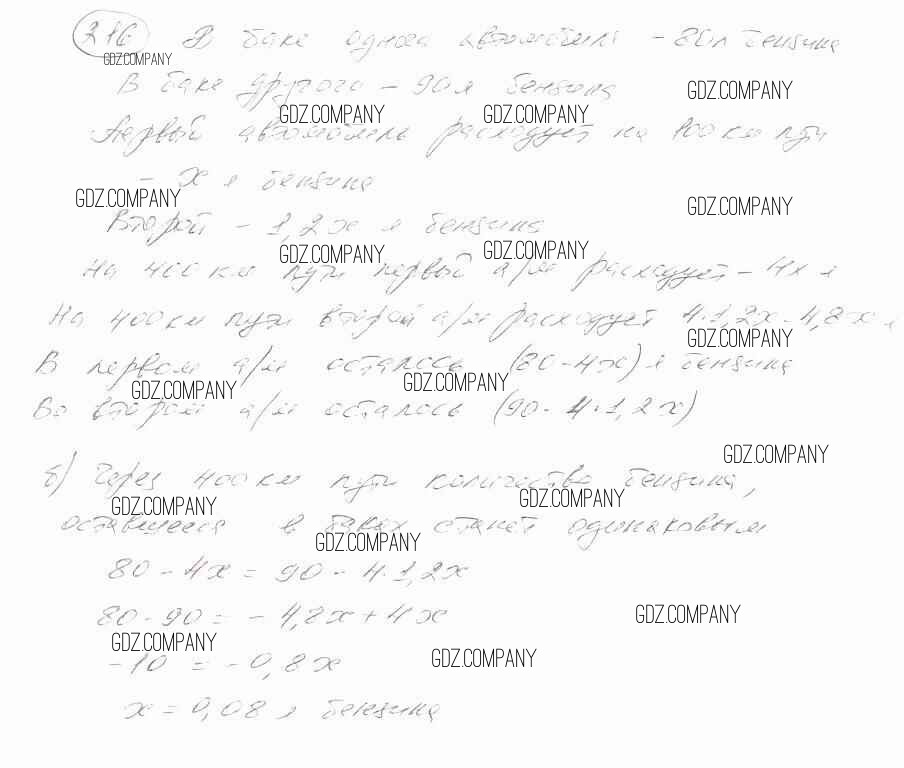 216 В баке одного автомобиля - 80л бензина
GDZ.COMPANY
В баке другого - 90л бензина
GDZ.COMPANY
GDZ.COMPANY GDZ.COMPANY
Первый автомобиль расходует на 100 км пути
- x л бензина
GDZ.COMPANY GDZ.COMPANY
Второй - 1,2x л бензина
GDZ.COMPANY GDZ.COMPANY
На 400 км пути первый а/м расходует - 4x л
На 400 км пути второй а/м расходует 4·1,2x - 4,8x л
GDZ.COMPANY
В первом а/м осталось (80-4x) л бензина
GDZ.COMPANY GDZ.COMPANY
Во втором а/м осталось (90 - 4·1,2x)
GDZ.COMPANY
б) Через 400 км пути количество бензина,
GDZ.COMPANY GDZ.COMPANY
оставшееся в баках станет одинаковым
GDZ.COMPANY
80 - 4x = 90 - 4·1,2x
80 - 90 = - 4,8x + 4x
GDZ.COMPANY
GDZ.COMPANY
-10 = -0,8x
GDZ.COMPANY
x = 0,08 л бензина